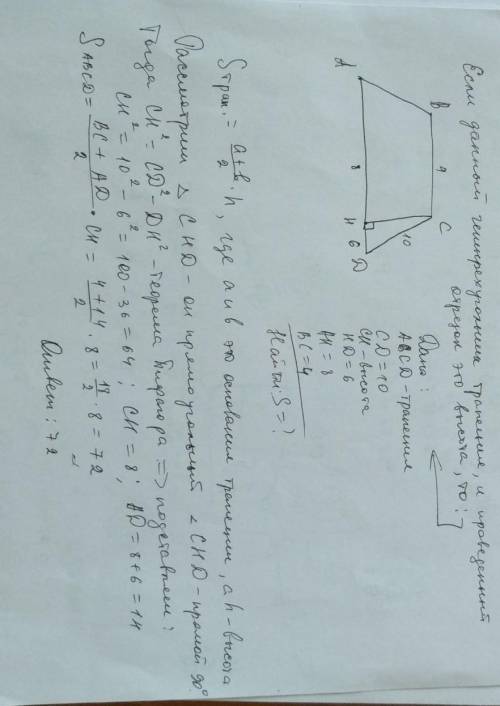 Если данный четырехугольник трапеция, и проведенный
отрезок это высота, то:
B 4 C
10
A 8 H 6 D
Дано:
ABCD - трапеция
CD = 10
CH - высота
HD = 6
AH = 8
BC = 4
Найти S = ?
Sтрап. = a+b/2 · h, где a и b это основания трапеции, а h - высота
Рассмотрим △ CHD - он прямоугольный ∠ CHD - прямой 90°
Тогда CH² = CD² - DH² - теорема Пифагора => подставляем:
CH² = 10² - 6² = 100 - 36 = 64; CH = 8; AD = 8+6 = 14
SABCD = BC + AD/2 · CH = 4+14/2 · 8 = 18/2 · 8 = 72
Ответ: 72